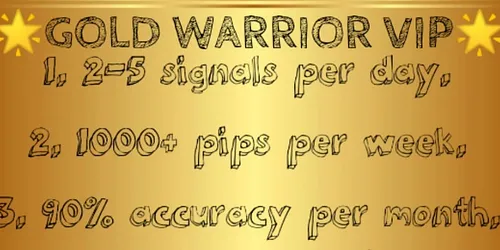 GOLD WARRIOR VIP
1, 2-5 signals per day,
2, 1000+ pips per week,
3, 90% accuracy per month,